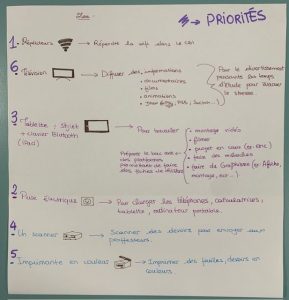 PRIORITÉS
1. Répéteurs → Répendre la wifi dans le CDI
6. Télévision → Diffuser des informations
• documentaires
• films
• animations
Pour le divertissement
pendant les temps
d'étude pour évacuer
le stresse.
3. Tablette + Stylet
+ clavier Blutooth
(iPad)
→ Pour travailler
• montage vidéo
• filmer
• projet en cours (ex: eric)
• faire des mélodies
• faire de Graphisme (ex Affiche,
montage, ect...)
Préparer le bac avec
des plateformes
permettant de faire
des fiches de
2. Prise Électrique → Pour charger les téléphones, calculatrices,
tablette, ordinateur portable.
4. Un scanner → Scanner des devoirs pour envoyer aux
professeurs.
5. Imprimante en couleur → Imprimer des feuilles, devoirs en
couleurs.